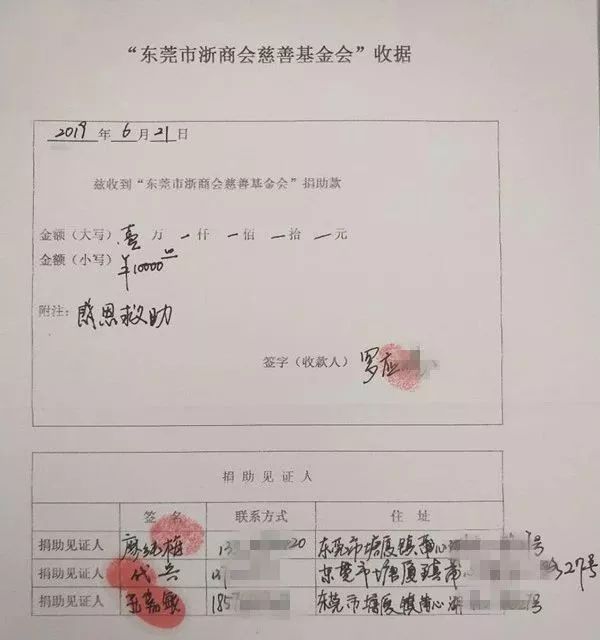 “东莞市浙商会慈善基金会”收据
2019 年 6 月 21 日
兹收到“东莞市浙商会慈善基金会”捐助款
金额(大写) 壹 万 一 仟 一 佰 一 拾 一 元
金额(小写) ¥10000
附注: 感恩救助
签字(收款人) 罗应
捐助见证人
签名 联系方式 住址
捐助见证人 梅 13 20 东莞市塘厦镇蒲心 号
捐助见证人 代兵 东莞市塘厦镇蒲 27号
捐助见证人 王 敏 185 东莞市塘厦镇蒲心湖 号